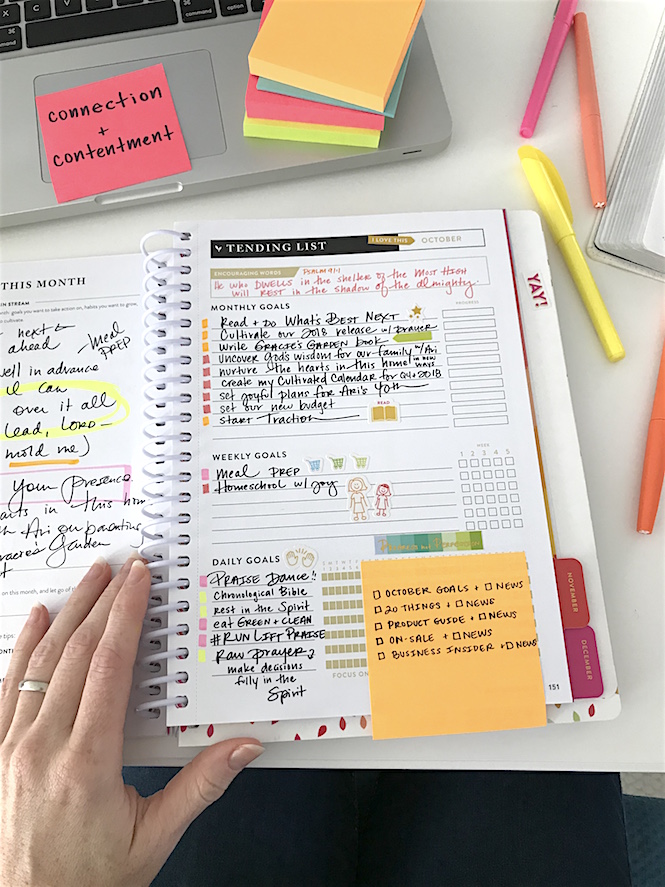 control
option
command
command
option
control
connection
+
contentment
THIS MONTH
next
ahead
meal
PREP
well in advance
I can
over it all
Lead, LORD-
mold me)
Your presence
in this
Ari on parenting
Garden
on this month, and let go of
TENDING LIST
I LOVE THIS
OCTOBER
ENCOURAGING WORDS
PSALM 91:1
He who DWELLS in the shelter of the MOST HIGH
will REST in the shadow of the almighty.
MONTHLY GOALS
PROGRESS
Read + DO WHAT'S BEST NEXT
Cultivate our 2018 release w/ prayer
write GRACIE'S GARDEN book
uncover God's wisdom for our family w/ Ari
nurture the hearts in this home in new ways
create my Cultivated Calendar for Q4 + 2018
set joyful plans for Ari's 40th
set our new budget
start Traction
READ
WEEKLY GOALS
WEEK
1 2 3 4 5
meal PREP
Homeschool w/ joy
DAILY GOALS
PRAISE Dance!!
Chronological Bible
rest in the Spirit
eat GREEN + CLEAN
#RUN LIFT PRAISE
Raw prayer
make decisions
filly in the
Spirit
FOCUS ON
OCTOBER GOALS + NEWS
20 THINGS + NEWS
PRODUCT GUIDE + NEWS
ON-SALE + NEWS
BUSINESS INSIDER + NEWS
151
YAY!
NOVEMBER
DECEMBER